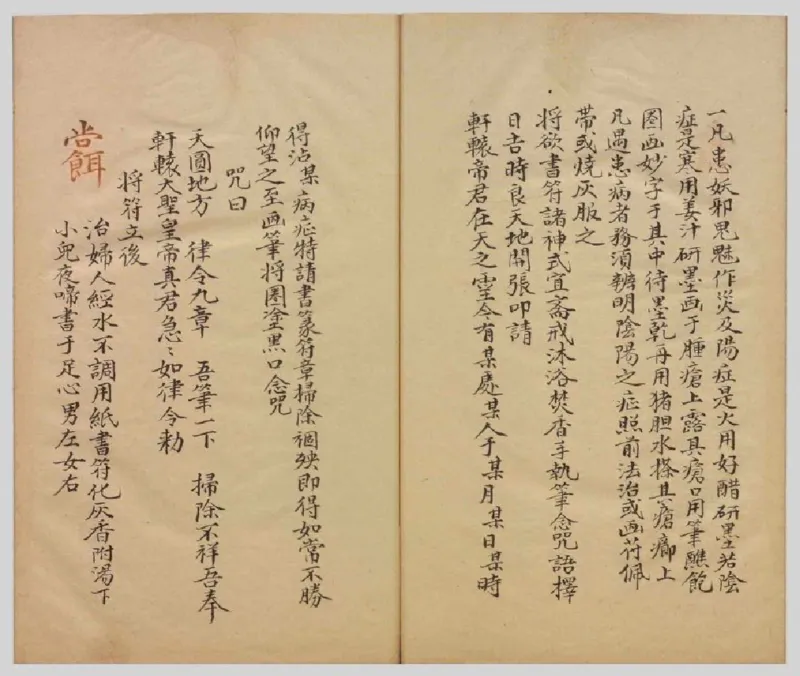 一凡患妖邪鬼魅作災及陽症是火用好醋研墨若陰
症是寒用姜汁研墨画于腫瘡上露其瘡口用筆蘸飽
圈画妙字于其中待墨乾再用猪胆水搽其瘡癤上
凡遇患病者務須辨明陰陽之症照前法治或画符佩
帶或燒灰服之
將欲書符諸神式宜齋戒沐浴焚香手執筆念咒語擇
日吉時良天地開張叩請
軒轅帝君在天之靈今有某處某人于某月某日某時
得沾某病症特請書篆符章掃除禍殃即得如常不勝
仰望之至画筆將圈塗黑口念咒
咒曰
天圓地方 律令九章 吾筆一下 掃除不祥吾奉
軒轅大聖皇帝真君急〻如律令勅
將符立後
治婦人經水不調用紙書符化灰香附湯下
小兒夜啼書于足心男左女右